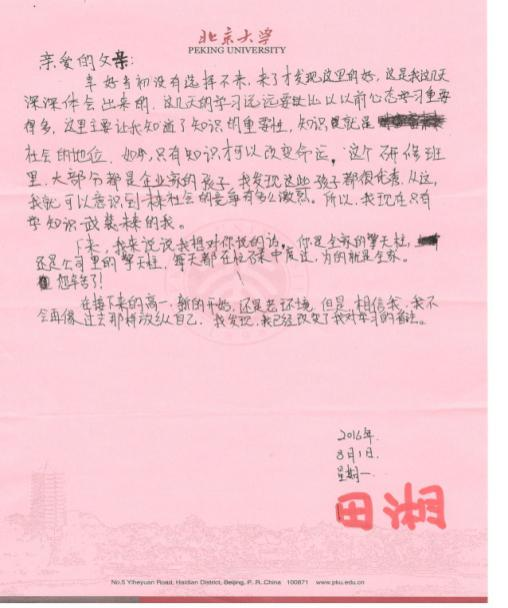 北京大学
PEKING UNIVERSITY
亲爱的父亲:
幸好当初没有选择不来,来了才发现这里的好,这是我这几天
深深体会出来的,这几天的学习远远要比以前心态学习重要
得多,这里主要让我知道了知识的重要性,知识就是
社会的地位,如今,只有知识才可以改变命运,这个研修班
里,大部分都是企业家的孩子,我发现这些孩子都很优秀,从这,
我就可以意识到未来社会的竞争有多么激烈。所以,我现在只有
学知识武装未来的我。
下来,我来说说我想对你说的话。你是全家的擎天柱,
还是公司里的擎天柱,每天都在忙碌中度过,为的就是全家。
您辛苦了!
在接下来的高一,新的开始,还是老环境,但是,相信我,我不
会再像过去那样放纵自己,我发现,我已经改变了我对学习的看法。
2016年
8月1日.
星期一.
No.5 Yiheyuan Road, Haidian District, Beijing, P. R. China 100871 www.pku.edu.cn